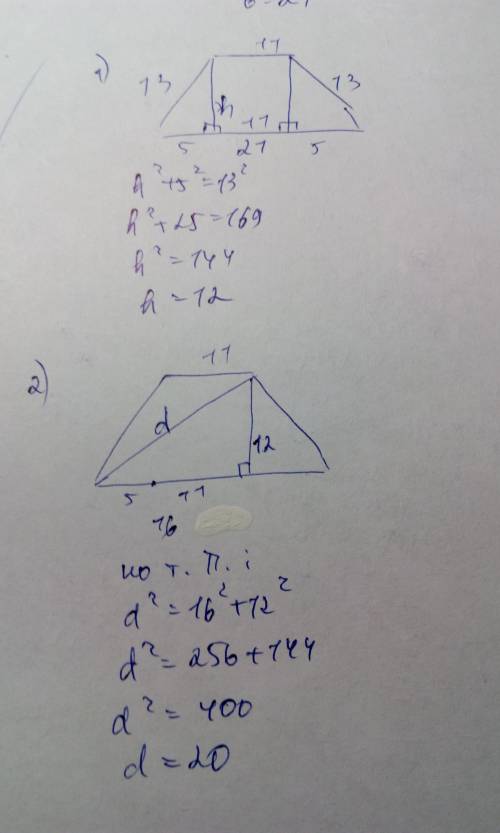 1)
11
13 13
h
11
5 21 5
h²+5²=13²
h²+25=169
h²=144
h=12
2)
11
d
12
5 11
16
по т. П.:
d²=16²+12²
d²=256+144
d²=400
d=20